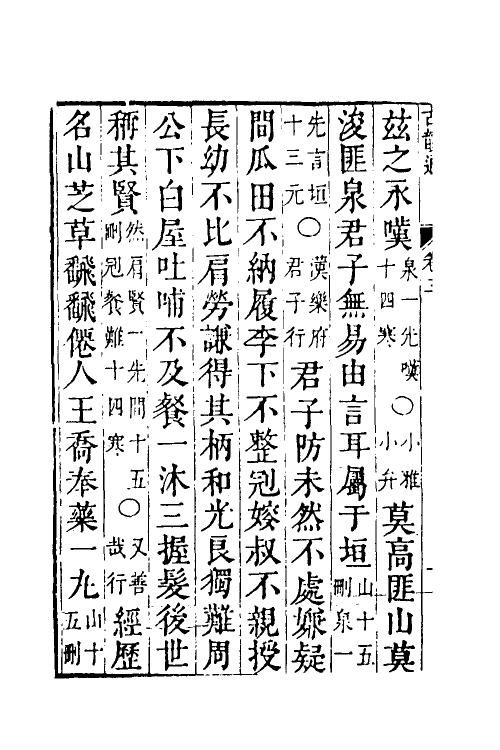 古韻通 卷三
茲之永嘆泉一先嘆十四寒○小雅小弁莫高匪山莫
浚匪泉君子無易由言耳屬于垣山十五刪泉一
先言垣十三元○漢樂府君子行君子防未然不處嫌疑
間瓜田不納履李下不整冠嫂叔不親授
長幼不比肩勞謙得其柄和光良獨難周
公下白屋吐哺不及餐一沐三握髮後世
稱其賢然肩賢一先間十五刪冠餐難十四寒○又善哉行經歷
名山芝草飜飜僊人王喬奉藥一丸山十五刪